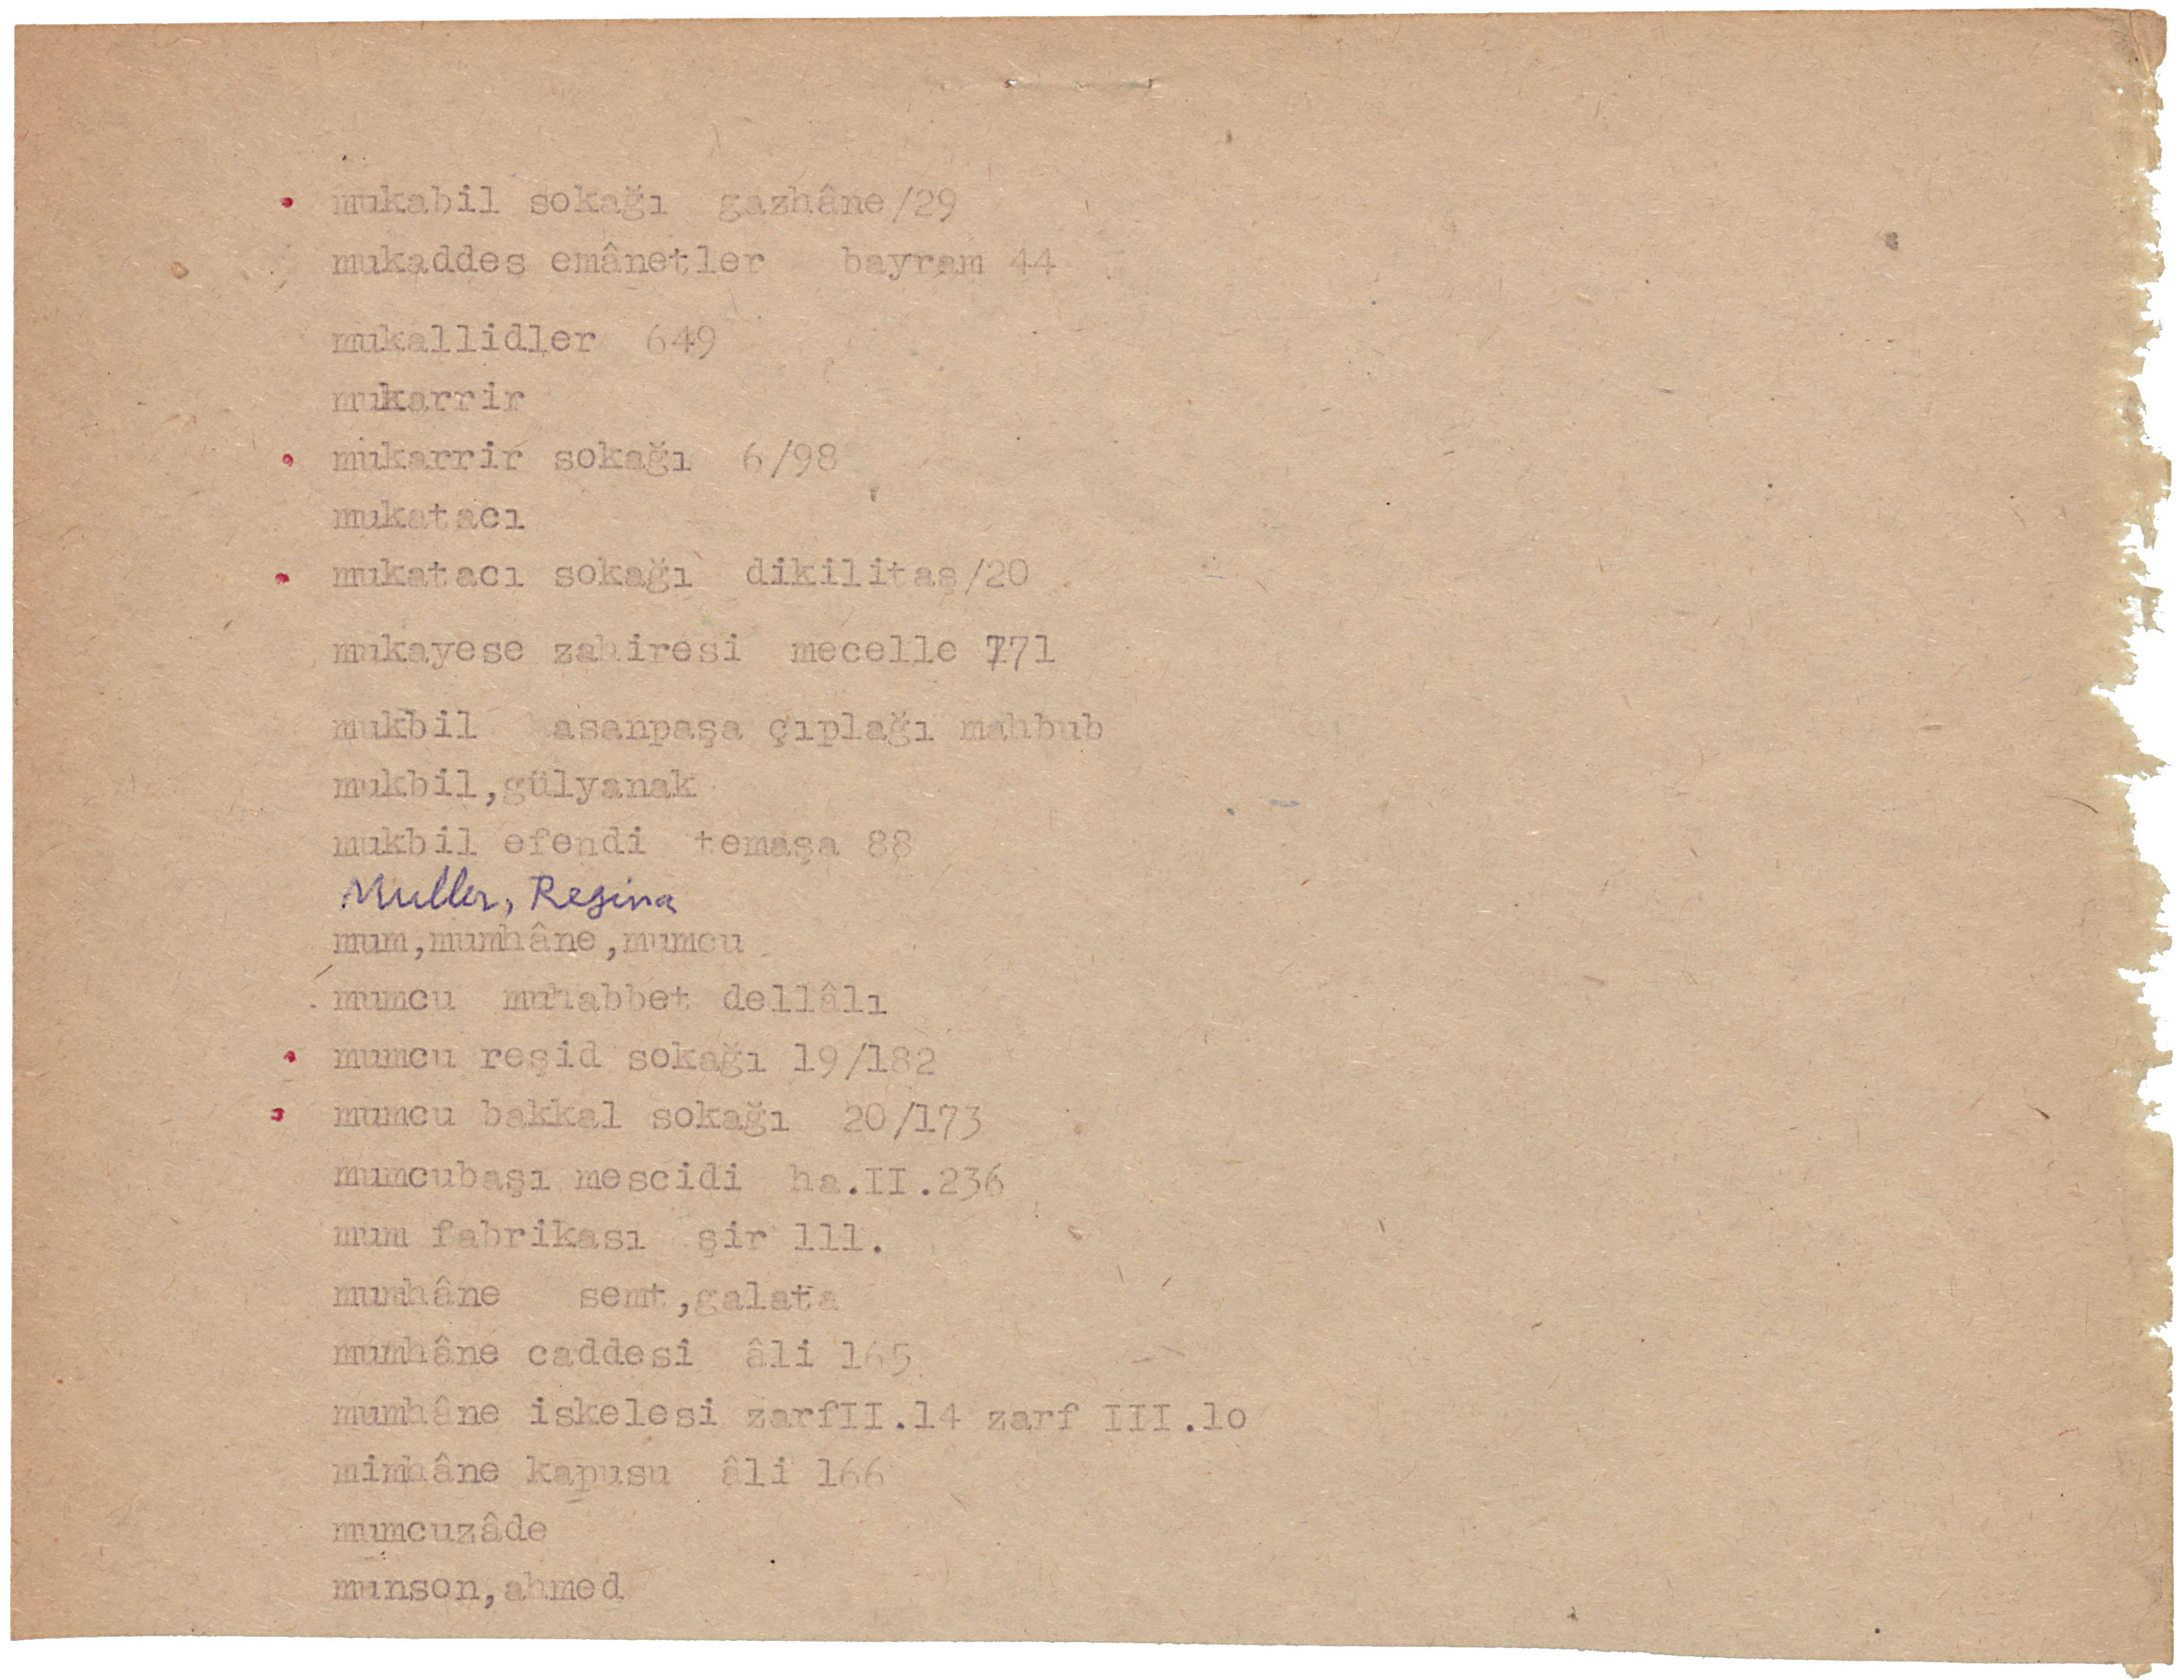 mukabil sokağı gazhâne/29
mukaddes emânetler bayram 44
mukallidler 649
mukarrir
mukarrir sokağı 6/98
mukatacı
mukatacı sokağı dikilitas/20
mukayese zahiresi mecelle 771
mukbil hasanpaşa çıplağı mahbub
mukbil,gülyanak
mukbil efendi temaşa 88
Muller, Regina
mum,mumhâne,mumcu
mumcu muhabbet dellâlı
mumcu reşid sokağı 19/182
mumcu bakkal sokağı 20/173
mumcubaşı mescidi ha.II.236
mum fabrikası şir 111.
mumhâne semt,galata
mumhâne caddesi âli 165
mumhâne iskelesi zarfII.14 zarf III.1o
mimhâne kapusu âli 166
mumcuzâde
munson,ahmed